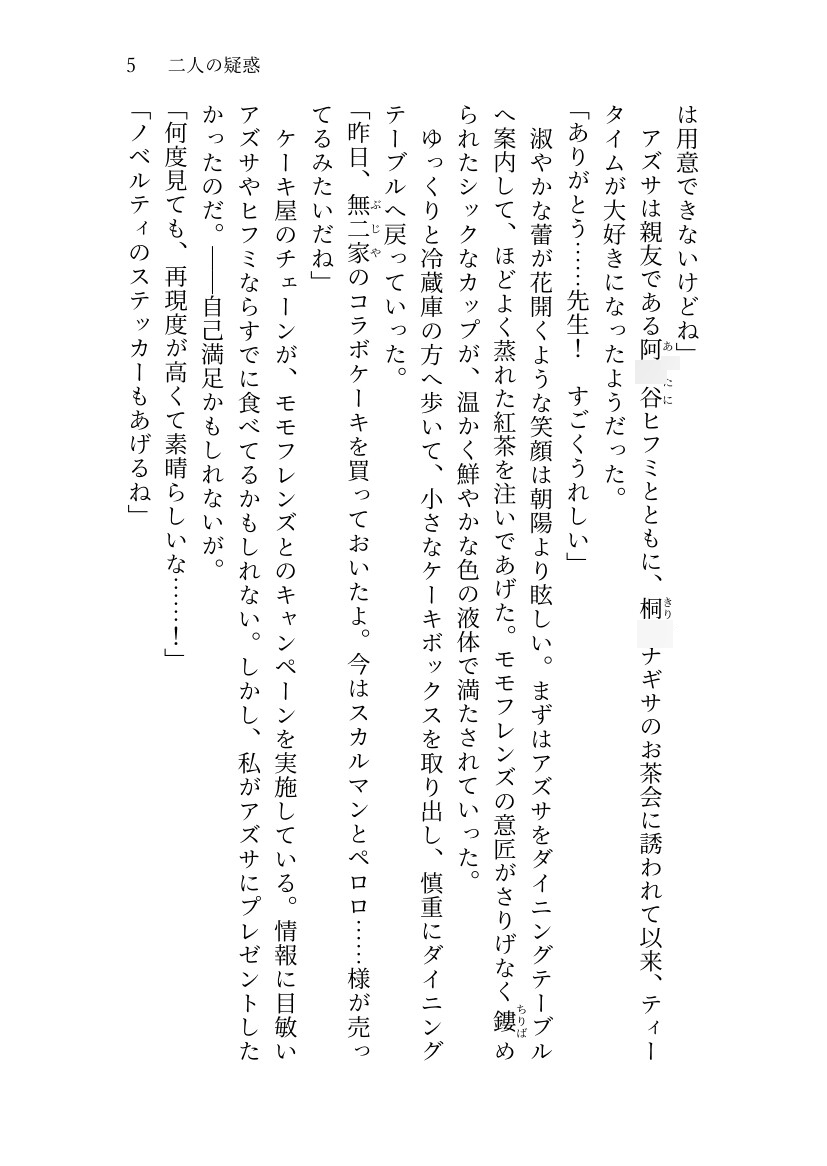 5　二人の疑惑
は用意できないけどね」
　アズサは親友である阿谷ヒフミとともに、桐ナギサのお茶会に誘われて以来、ティー
タイムが大好きになったようだった。
「ありがとう……先生！　すごくうれしい」
　淑やかな蕾が花開くような笑顔は朝陽より眩しい。まずはアズサをダイニングテーブル
へ案内して、ほどよく蒸れた紅茶を注いであげた。モモフレンズの意匠がさりげなく鏤め
られたシックなカップが、温かく鮮やかな色の液体で満たされていった。
　ゆっくりと冷蔵庫の方へ歩いて、小さなケーキボックスを取り出し、慎重にダイニング
テーブルへ戻っていった。
「昨日、無二家のコラボケーキを買っておいたよ。今はスカルマンとペロロ……様が売っ
てるみたいだね」
　ケーキ屋のチェーンが、モモフレンズとのキャンペーンを実施している。情報に目敏い
アズサやヒフミならすでに食べてるかもしれない。しかし、私がアズサにプレゼントした
かったのだ。――自己満足かもしれないが。
「何度見ても、再現度が高くて素晴らしいな……！」
「ノベルティのステッカーもあげるね」